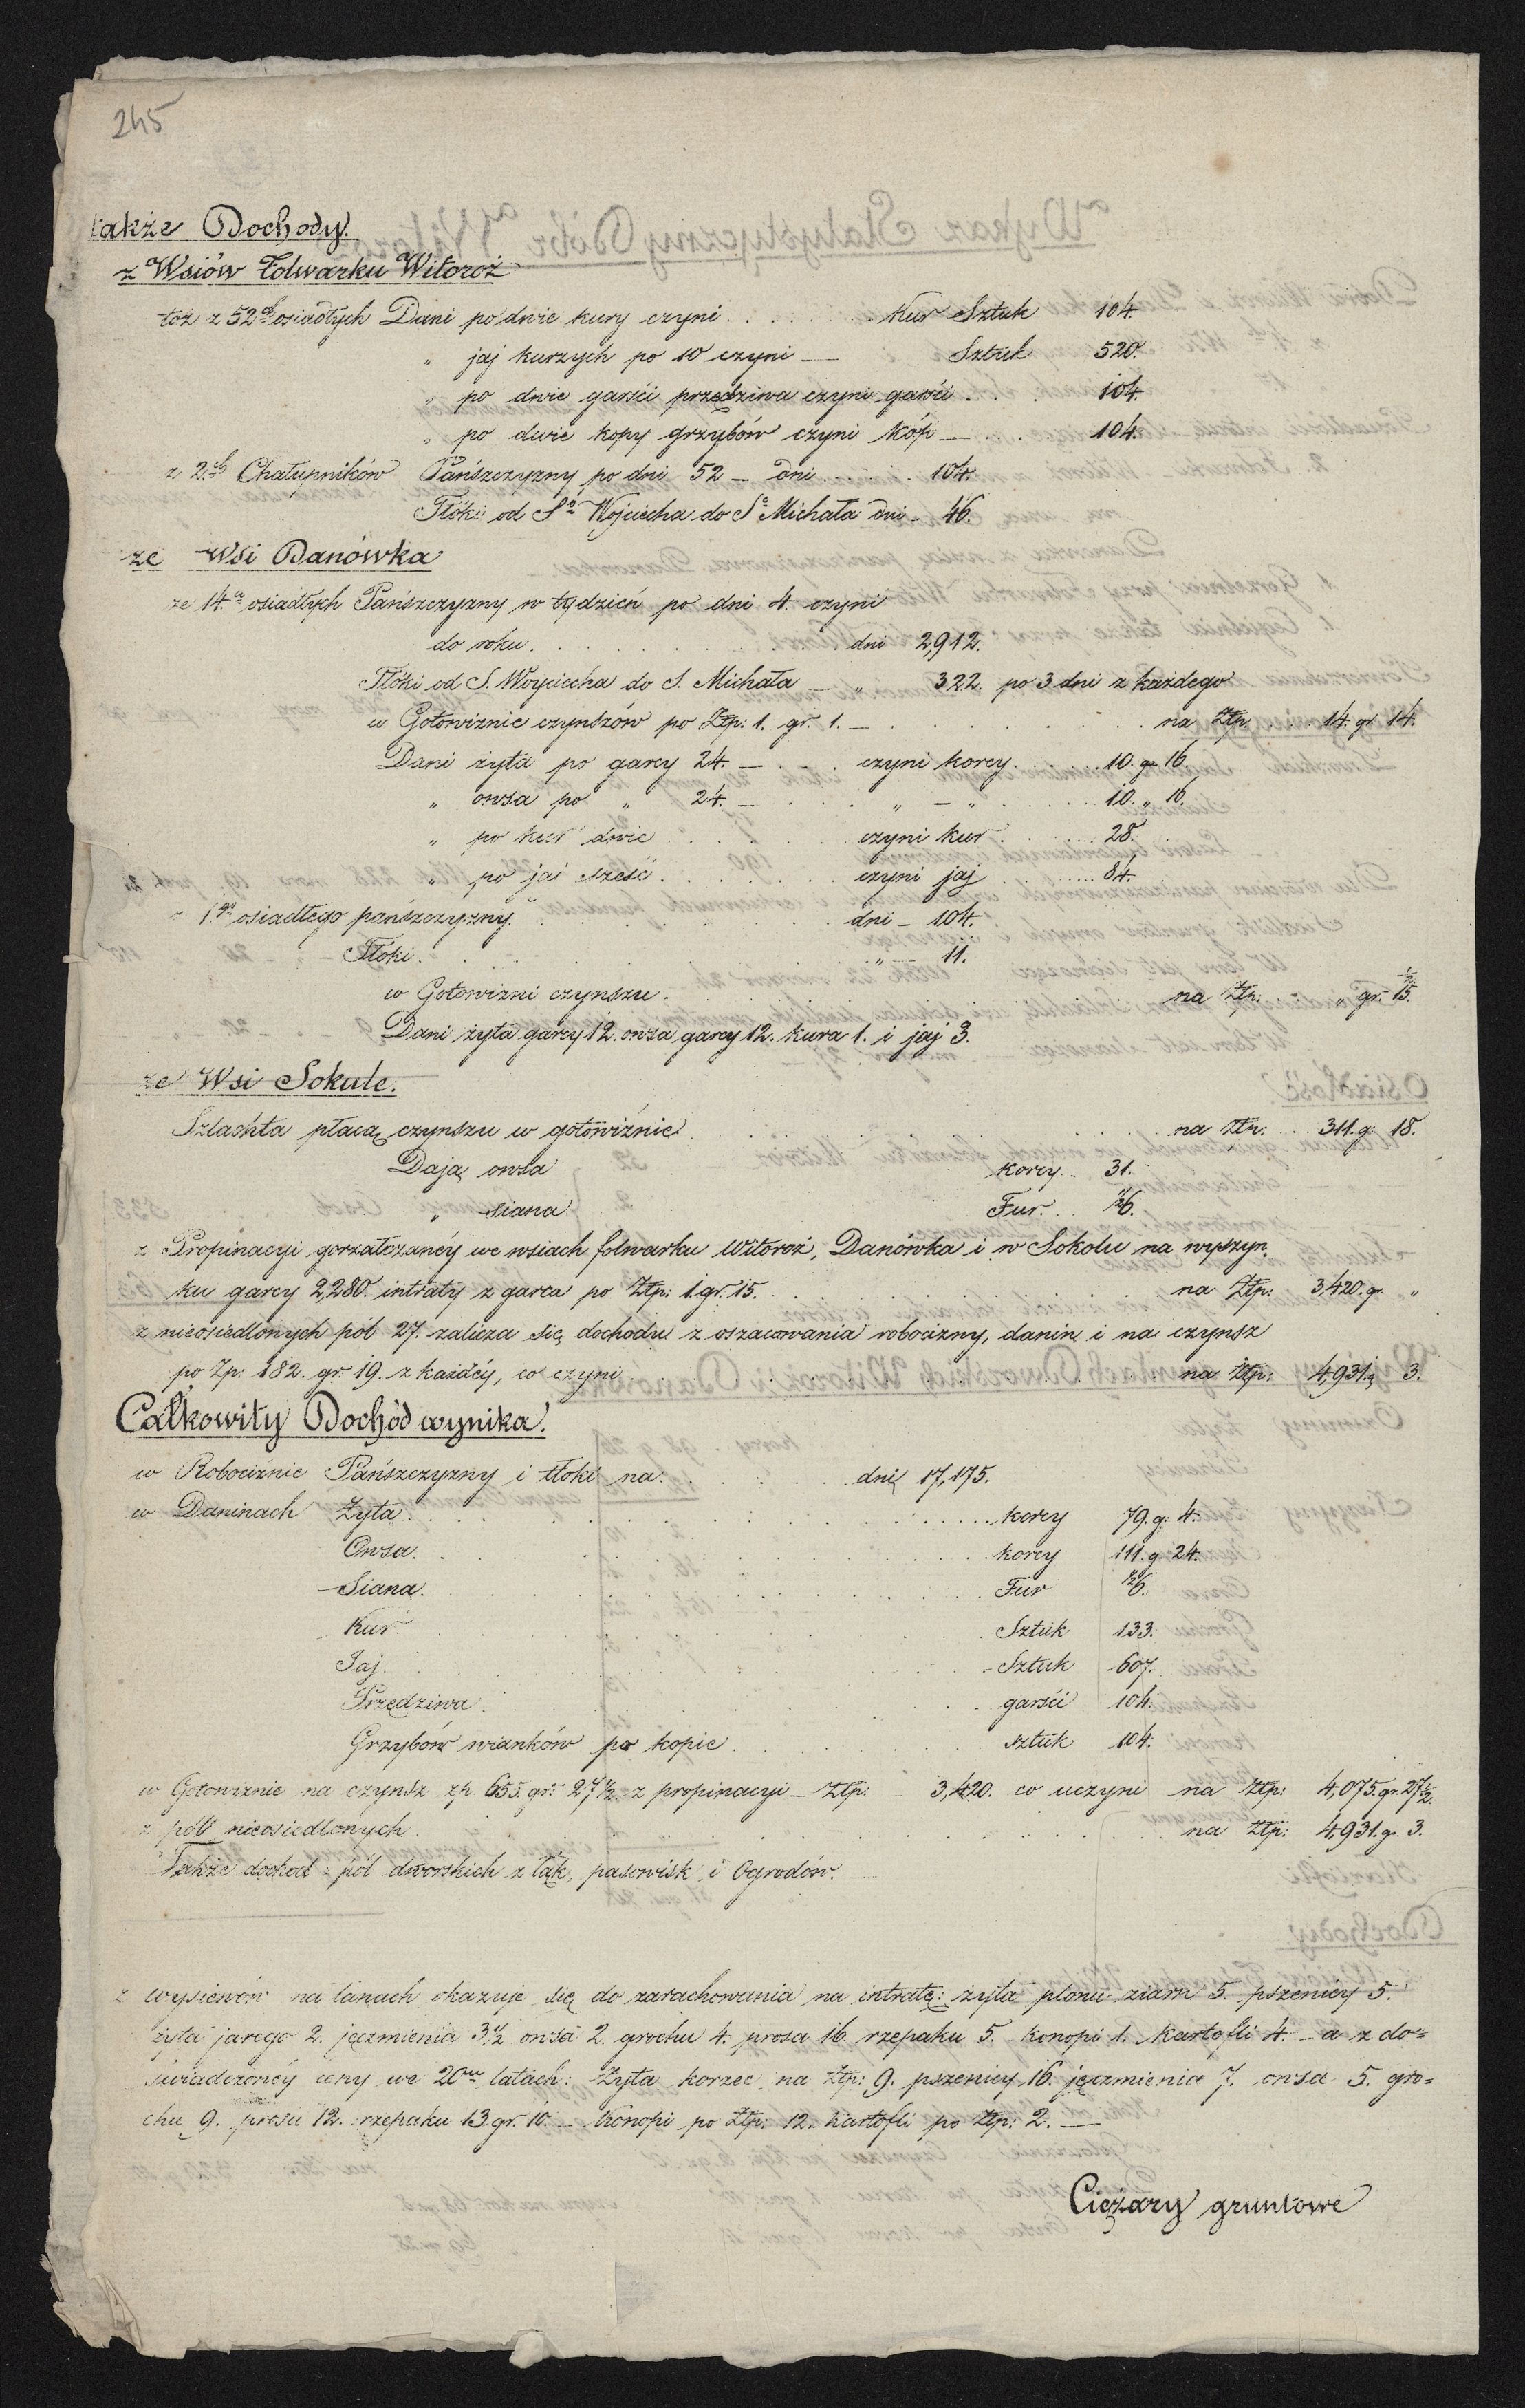 245
także Dochody.
z Wsiów Folwarku Witoroż
toż z 52ch osiadłych Dani po dwie kury czyni . . . . . Kur Sztuk 104.
„ jaj kurzych po 10 czyni — Sztuk 520.
„ po dwie garści przędziwa czyni garści . . . 104.
„ po dwie kopy grzybów czyni kóp — . . . 104.
z 2ch Chałupników Pańszczyzny po dni 52 — dni . . . 104.
Tłóki od Sgo Wojciecha do Sgo Michała dni — 46.
ze Wsi Danówka
ze 14u osiadłych Pańszczyzny w tydzień po dni 4. czyni
do roku . . . . . dni 2,912.
Tłóki od S. Woyciecha do S. Michała — „ 322. po 3 dni z każdego
w Gotowiznie czynszów po Złp: 1. gr. 1. — . . . . . na Złp. 14. gr 14.
Dani żyta po garcy 24. — . . . czyni korcy . . . 10. ga 16.
„ owsa po „ 24. — . . . „ — „ . . . 10. „ 16.
„ po kur dwie . . . czyni kur . . . 28.
„ po jaj sześć . . . czyni jaj . . . 84.
z 1go osiadłego pańszczyzny . . . dni — 104.
Tłóki . . . „ — 11.
w Gotowizni czynszu . . . na Złp. — „ gr. 15 1/2.
Dani żyta garcy 12. owsa garcy 12. kura 1. i jaj 3.
ze Wsi Sokule.
Szlachta płacą czynszu w gotowiźnie . . . na Złp. . . 311. g. 18.
Dają owsa korcy . . 31.
„ siana Fur . . 26.
z Propinacyi gorzałczanéy we wsiach folwarku Witoroż, Danówka i w Sokolu na wyszyn-
ku garcy 2,280. intraty z garca po Złp: 1. gr. 15. . . . na Złp: 3,420. g. „
z nieosiedlonych pół 27. zalicza się dochodu z oszacowania robocizny, danin i na czynsz
po Zp: 182. gr. 19. z każdéy, co czyni . . . na Złp: 4,931. g. 3.
Całkowity Dochód wynika.
w Robociznie Pańszczyzny i tłóki na . . . dni 17,175.
w Daninach Żyta . . . korcy 79. g. 4.
Owsa . . . korcy 111. g. 24.
Siana . . . Fur 26.
Kur . . . Sztuk 133.
Jaj . . . Sztuk 607.
Przędziwa . . . garści 104.
Grzybów wianków po kopie . . . sztuk 104.
w Gotowiznie na czynsz zp. 655. gr. 27 1/2. z propinacyi — Złp: 3,420. co uczyni na Złp: 4,075. gr. 27 1/2.
z pół nieosiedlonych . . . na Złp: 4,931. g. 3.
Także dochod z pól dworskich z łąk, pasowisk, i Ogrodów.
z wysiewów na łanach okazuje się do zarachowania na intratę: żyta plonu ziarn 5. pszenicy 5.
żyta jarego 2. jęczmienia 3 1/2 owsa 2. grochu 4. prosa 16. rzepaku 5. konopi 1. kartofli 4. — a z do=
świadczonéy ceny we 20tu latach: Żyta korzec na Złp: 9. pszenicy 16. jęczmienia 7. owsa 5. gro=
chu 9. prosa 12. rzepaku 13 gr. 10. — Konopi po Złp: 12. kartofli po Złp: 2. —
Ciężary gruntowe